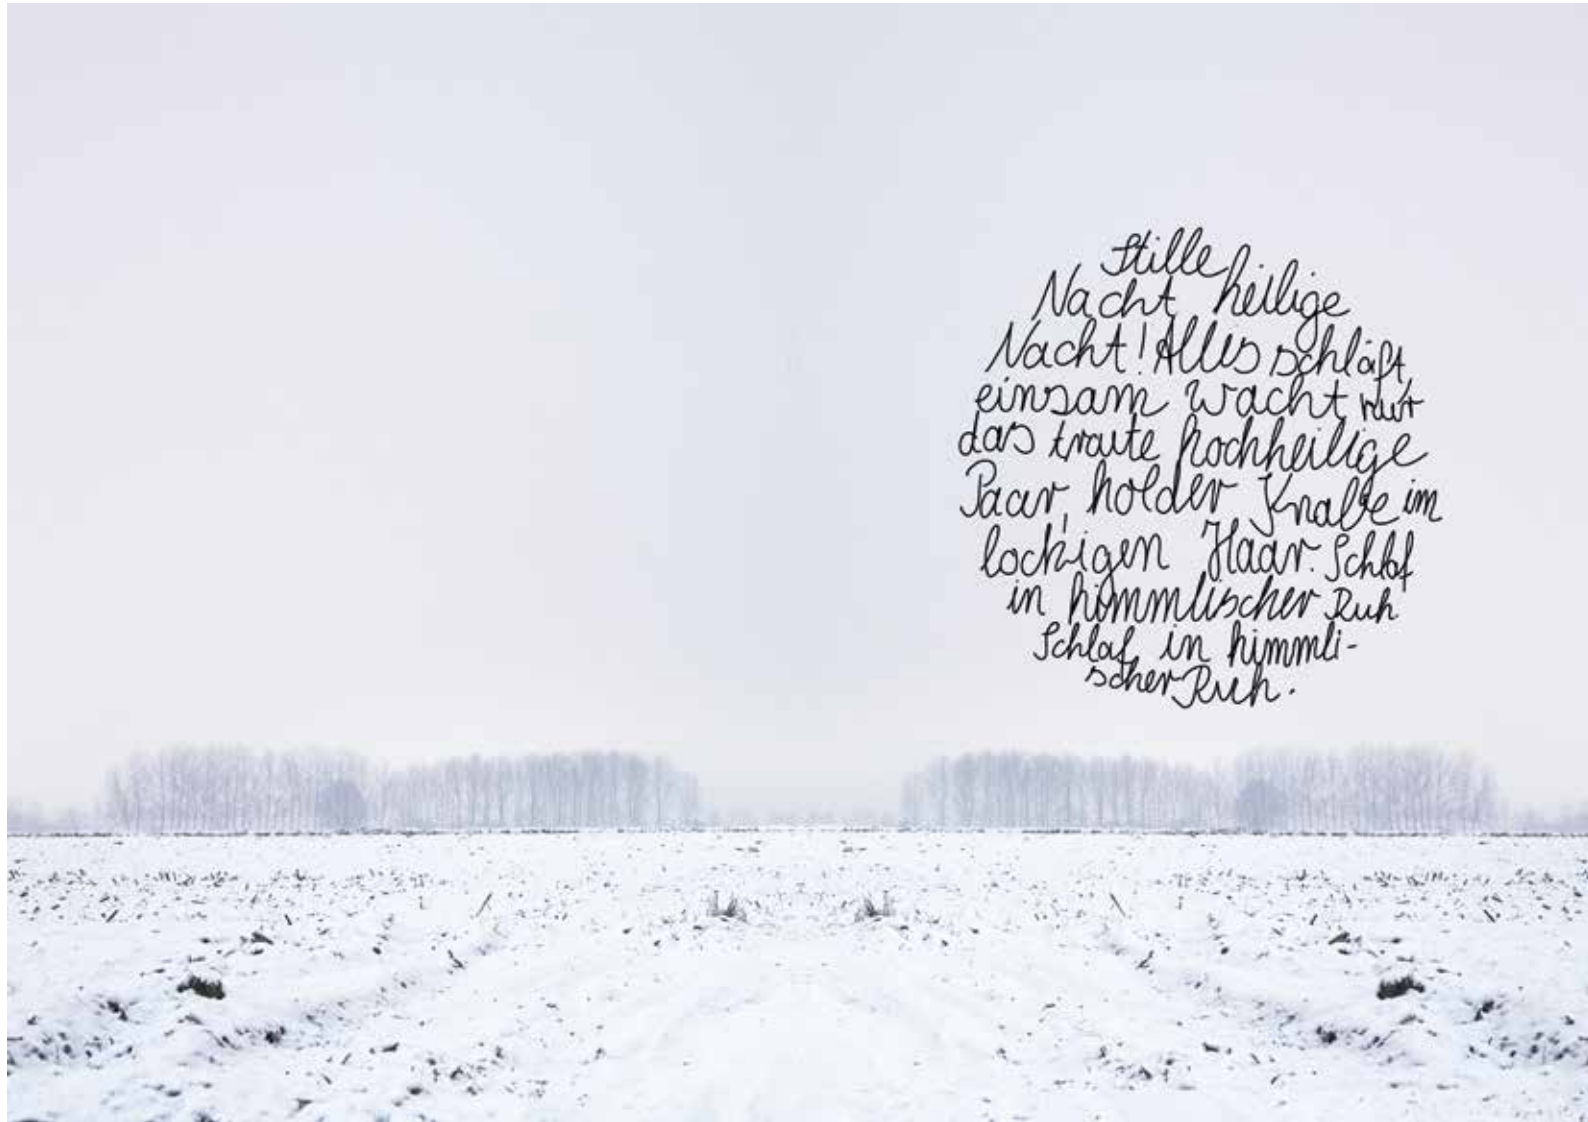 Stille
Nacht heilige
Nacht! Alles schläft,
einsam wacht nur
das traute hochheilige
Paar, holder Knabe im
lockigen Haar. Schlaf
in himmlischer Ruh
Schlaf in himmli-
scher Ruh.